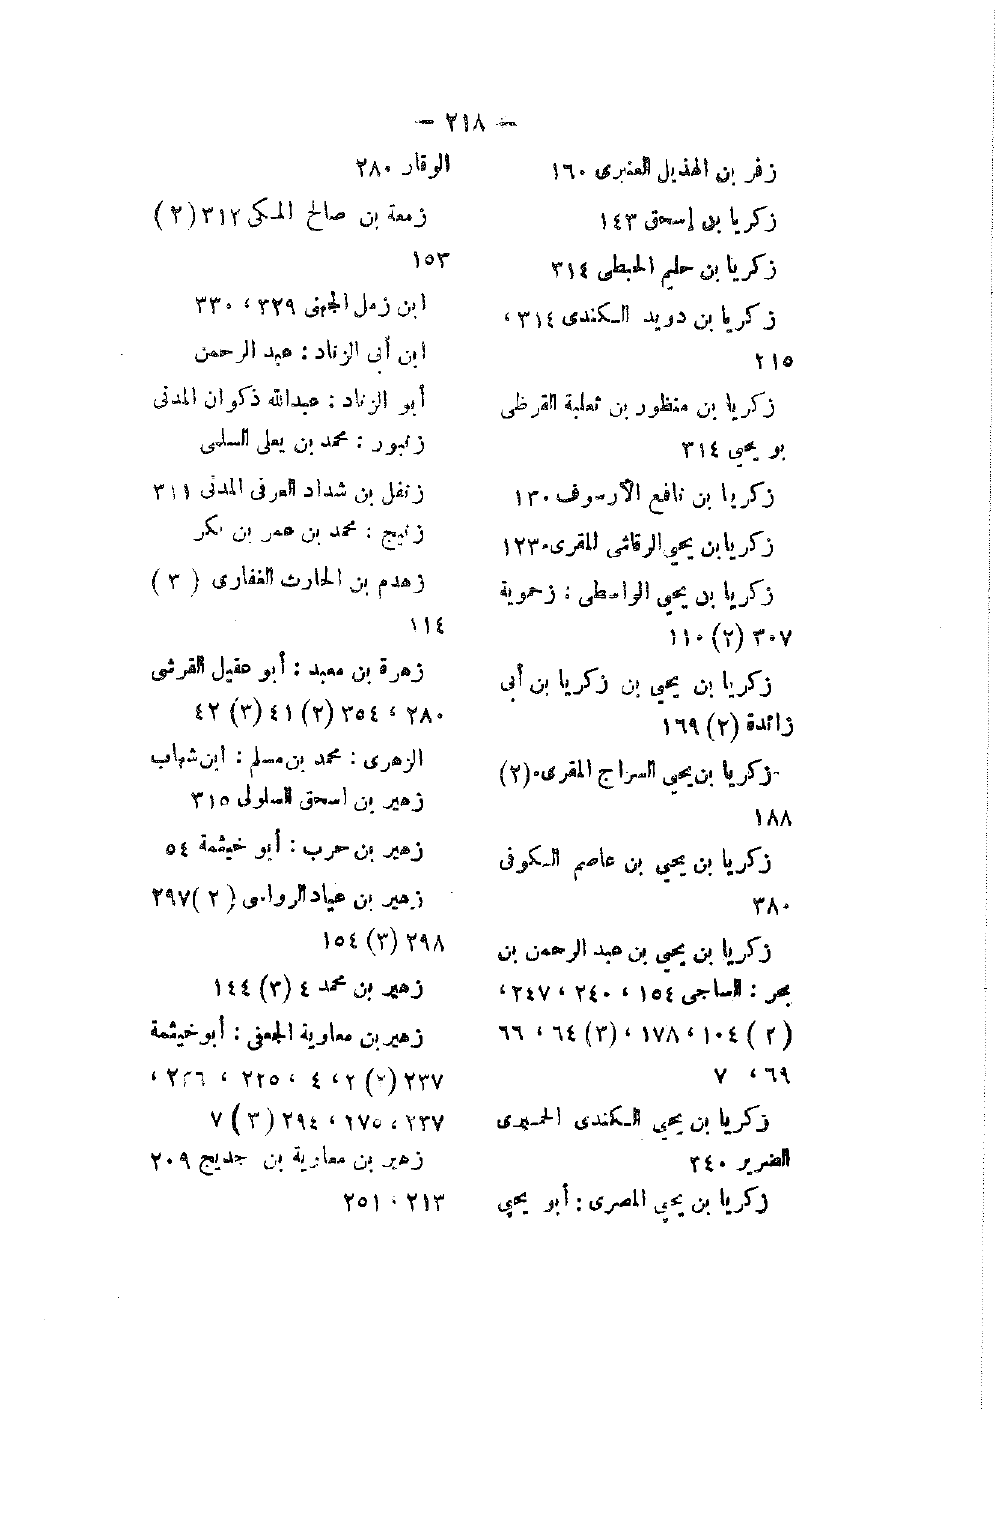 — ٢١٨ —
زفر بن الهذيل العنبرى ١٦٠
زكريا بن إسحق ١٤٣
زكريا بن حليم الحبطى ٣١٤
زكريا بن دويد الكندى ٣١٤ ،
٢١٥
زكريا بن منظور بن ثعلبة القرظى
بو يحيى ٣١٤
زكريا بن نافع الأرسوف ١٣٠
زكريا بن يحيى الرقاشى المقرى ١٢٣٠
زكريا بن يحيى الواسطى : زحموية
٣٠٧ (٢) ١١٠
زكريا بن يحيى بن زكريا بن أبى
زائدة (٢) ١٦٩
زكريا بن يحيى السراج المقرى (٢)
١٨٨
زكريا بن يحيى بن عاصم الكوفى
٣٨٠
زكريا بن يحيى بن عبد الرحمن بن
بحر : الساجى ١٥٤ ، ٢٤٠ ، ٢٤٧ ،
(٢) ١٠٤ ، ١٧٨ ، (٣) ٦٤ ، ٦٦
٦٩ ، ٧
زكريا بن يحيى الكندى الحميرى
الضرير ٣٤٠
زكريا بن يحيى المصرى : أبو يحيى
الوقار ٢٨٠
زمعة بن صالح المكى ٣١٢ (٢)
١٥٣
ابن زمل الجهنى ٣٢٩ ، ٣٣٠
ابن أبى الزناد : عبد الرحمن
أبو الزناد : عبدالله ذكوان المدنى
زنبور : محمد بن يعلى السلمى
زنفل بن شداد العرفى المدنى ٣١١
زنيج : محمد بن عمر بن بكر
زهدم بن الحارث الغفارى (٣)
١١٤
زهرة بن معبد : أبو عقيل القرشى
٢٨٠ ، ٣٥٤ (٢) ٤١ (٣) ٤٢
الزهرى : محمد بن مسلم : ابن شهاب
زهير بن اسحق السلولى ٣١٥
زهير بن حرب : أبو خيثمة ٥٤
زهير بن عياد الرواسى (٢) ٢٩٧
٢٩٨ (٣) ١٥٤
زهير بن محمد ٤ (٣) ١٤٤
زهير بن معاوية الجعفى : أبو خيثمة
٢٣٧ (٢) ٢ ، ٤ ، ٢٢٥ ، ٢٢٦ ،
٢٣٧ ، ٢٧٥ ، ٢٩٤ (٣) ٧
زهير بن معاوية بن حديج ٢٠٩
٢١٣ ، ٢٥١